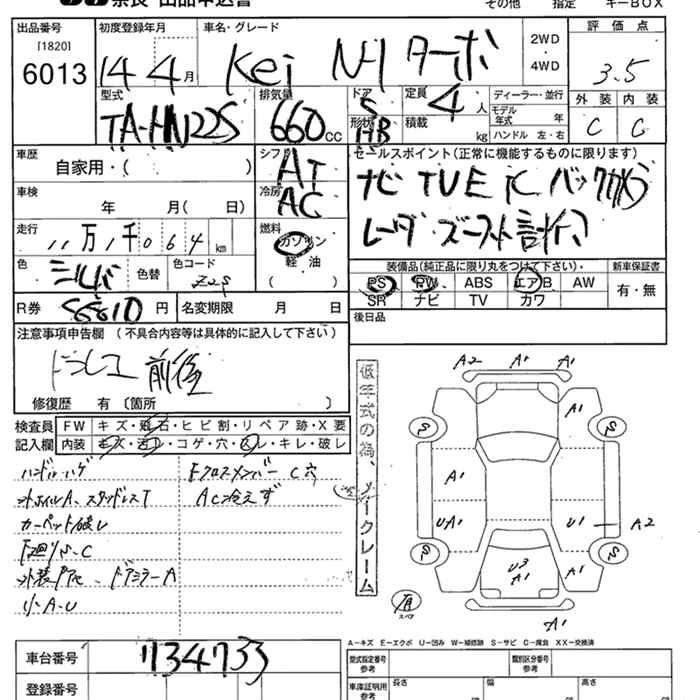 奈良 出品申込書
その他 指定 キーBOX
出品番号 初度登録年月 車名・グレード 評価点
[1820]
6013 14年 4月 Kei N-1 ターボ 2WD ・ 4WD 3.5
型式 排気量 ドア 定員 ディーラー・並行 外装 内装
TA-HN22S 660cc 5 4人 モデル年式 年 C C
形状 HB 積載 kg ハンドル 左・右
車歴 シフト セールスポイント(正常に機能するものに限ります)
自家用・( ) AT
車検 冷房 ナビ TV E/C バックカメラ
年 月( 日) AC レーダー ブースト計
走行 燃料
11万1千064km ガソリン
色 色替 色コード 軽油 装備品(純正品に限り丸をつけて下さい)・ 新車保証書
シルバー Z2S ( ) PS PW ABS エアB AW 有・無
SR ナビ TV カワ
R券 円 名変期限 月 日 後日品
注意事項申告欄 (不具合内容等は具体的に記入して下さい)
前後
修復歴 有 〔箇所 〕
検査員 FW キズ・飛石・ヒビ割・リペア跡・X要
記入欄 内装 キズ・汚レ・コゲ・穴・スレ・キレ・破レ
ハンドルハゲ Fクロスメンバー C穴
ホイルA、スタッドレスT AC冷えず
カーペット破レ
下廻りS、C
外装 ドアミラーA
小A・U
低年式の為、ノークレーム
A2 A1 A1
S A1 S
A1
UA1 U1 A2
S U3 A1 A1 S
有
スペア
A1
A−キズ E−エクボ U−凹み W−補修跡 S−サビ C−腐食 XX−交換済
車台番号 734733
登録番号
型式指定番号 参考 類別区分番号 参考
車庫証明用 参考 長さ 幅 高さ